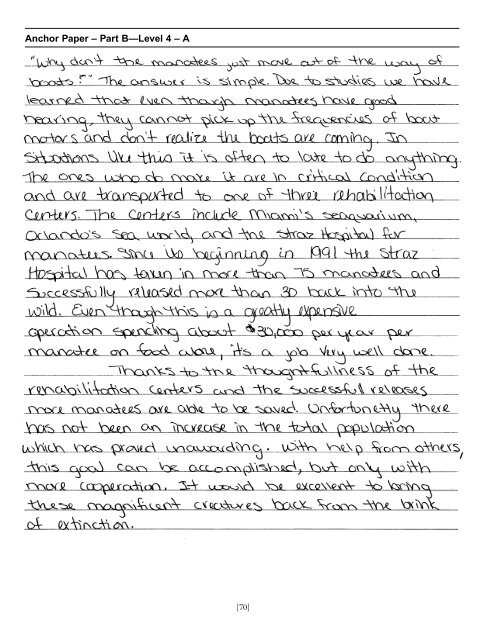 Anchor Paper – Part B—Level 4 – A
"Why don't the manatees just move out of the way of
boats?" The answer is simple. Due to studies we have
learned that even though manatees have good
hearing, they cannot pick up the frequencies of boat
motors and don't realize the boats are coming. In
situations like this it is often to late to do anything.
The ones who do make it are in critical condition
and are transported to one of three rehabilitation
centers. The centers include Miami's seaquarium,
Orlando's sea world, and the Straz Hospital for
manatees. Since its beginning in 1991 the Straz
Hospital has taken in more than 75 manatees and
successfully released more than 30 back into the
wild. Even though this is a greatly expensive
operation spending about $30,000 per year per
manatee on food alone, it's a job very well done.
Thanks to the thoughtfullness of the
rehabilitation centers and the successful releases
more manatees are able to be saved. Unfortunetly there
has not been an increase in the total population
which has proved unawarding. With help from others,
this goal can be accomplished, but only with
more cooperation. It would be excellent to bring
these magnificent creatures back from the brink
of extinction.
[70]